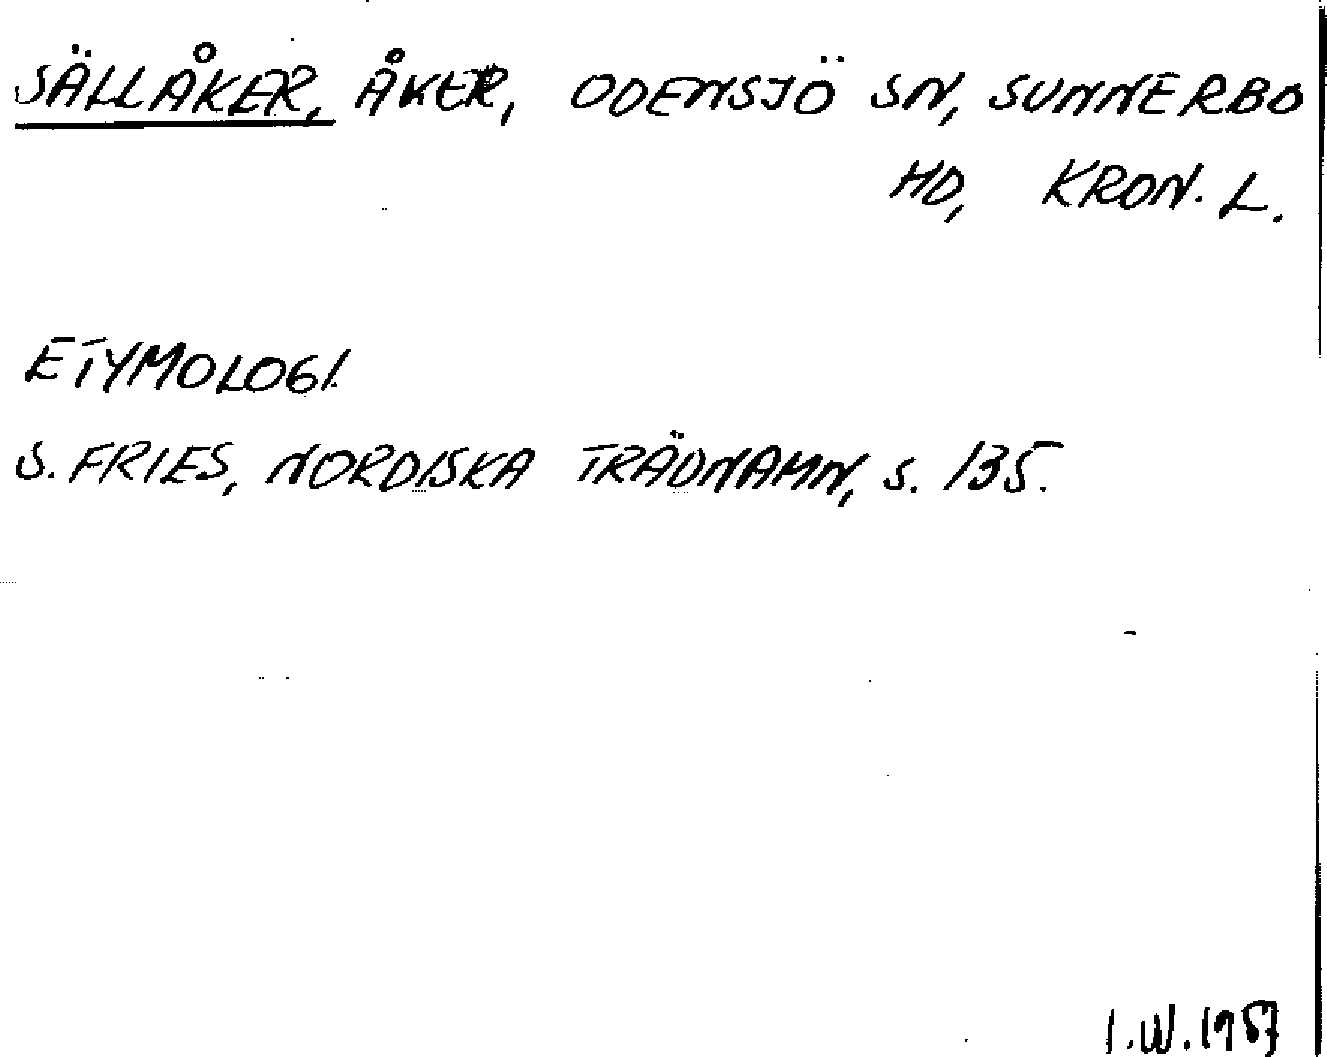 SÄLLÅKER, ÅKER, ODENSJÖ SN, SUNNERBO
HD, KRON. L.
ETYMOLOGI.
S. FRIES, NORDISKA TRÄDNAMN, S. 135.
I.W. 1957